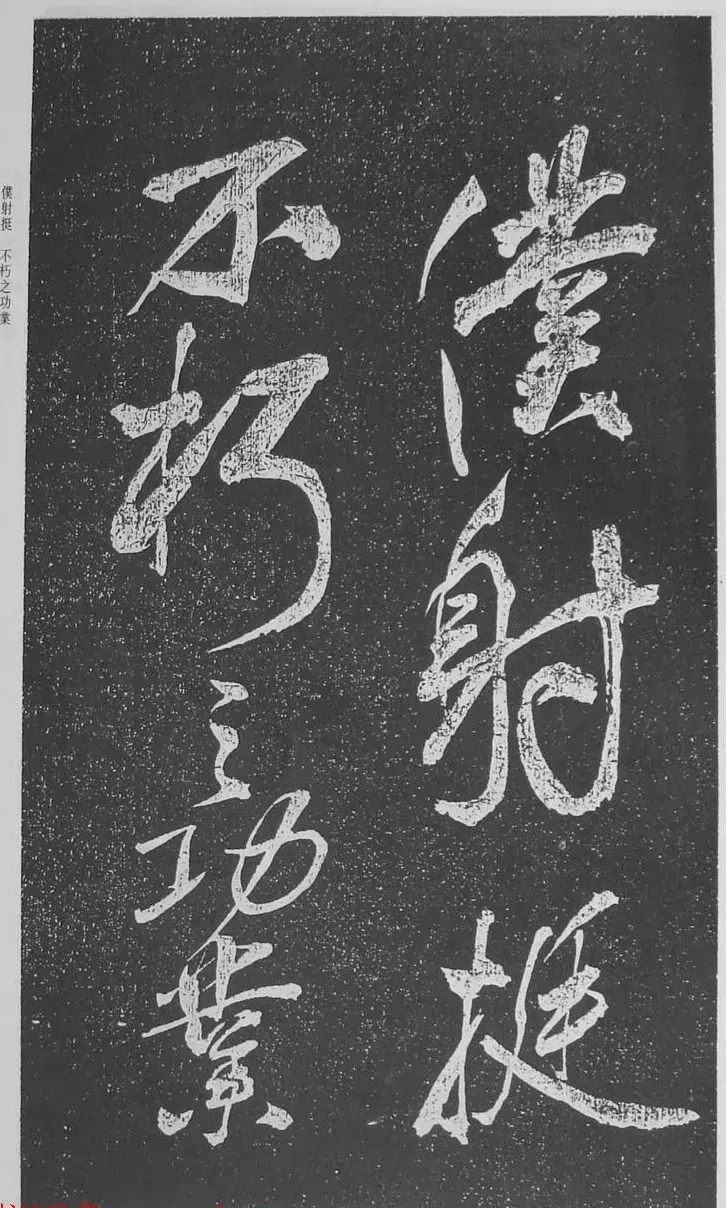 僕射挺
不朽之功業
僕射挺　不朽之功業